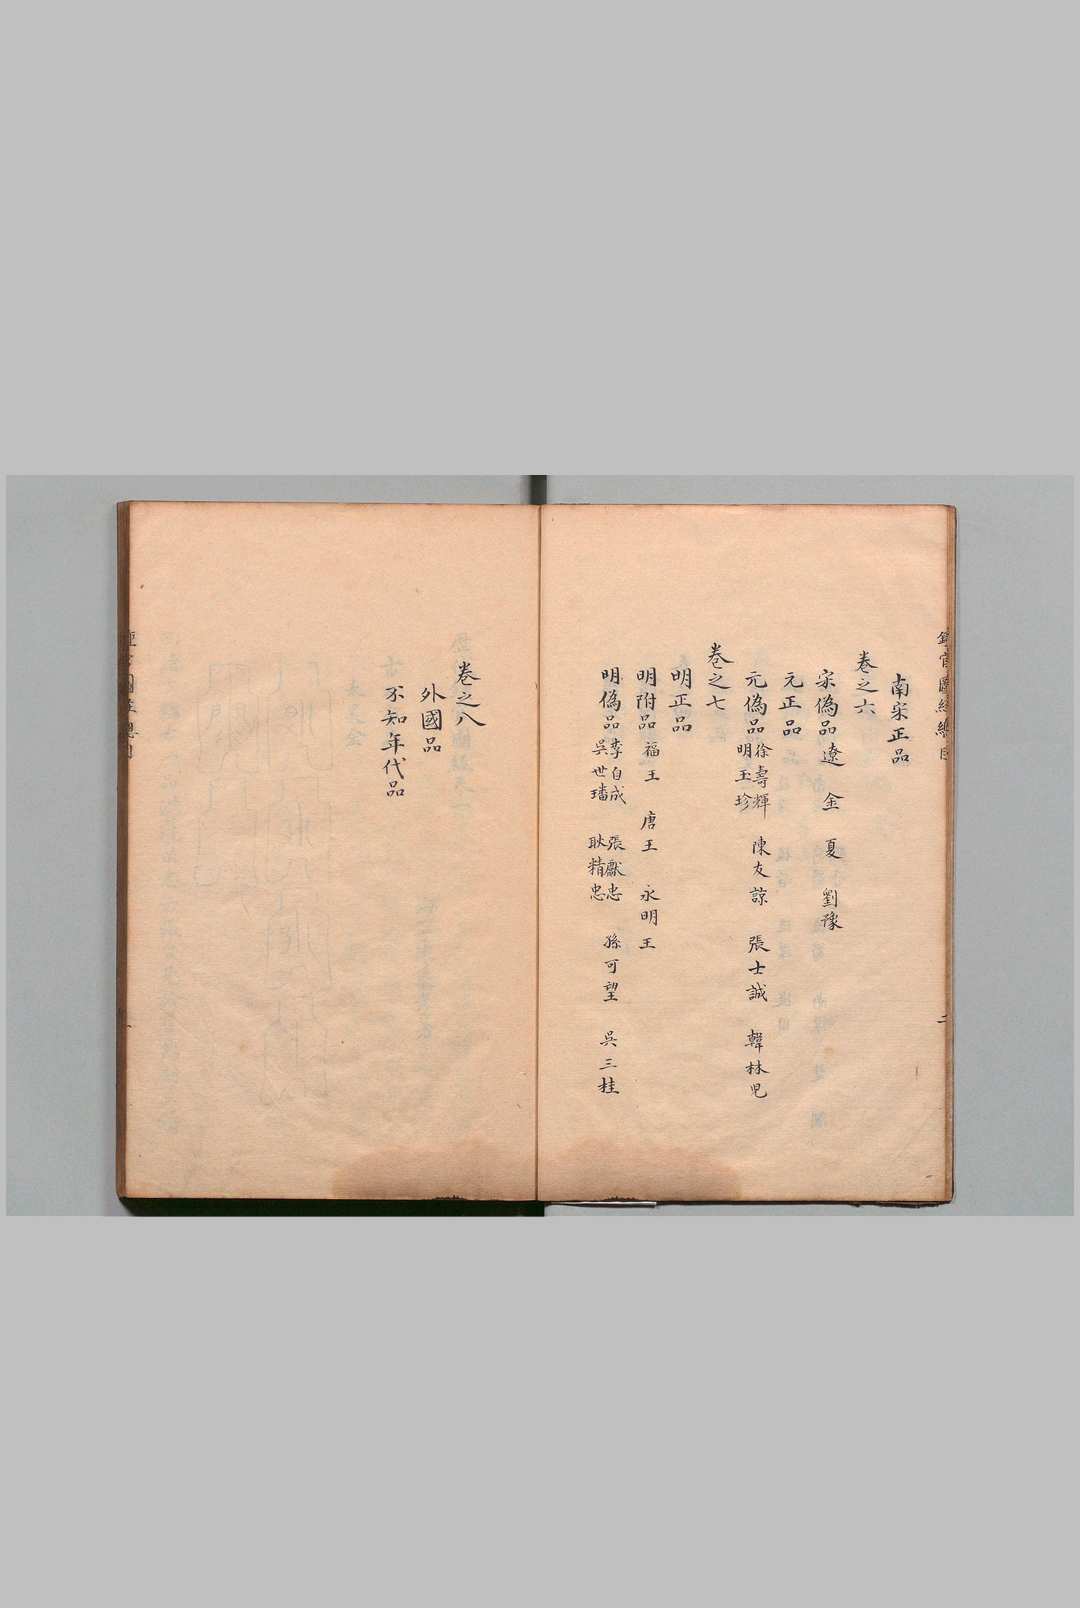 南宋正品
卷之六
宋偽品 遼 金 夏 劉豫
元正品
元偽品 徐壽輝 陳友諒 張士誠 韓林児
明玉珍
卷之七
明正品
明附品 福王 唐王 永明王
明偽品 李自成 張獻忠 孫可望 吳三桂
吳世璠 耿精忠
卷之八
外國品
不知年代品